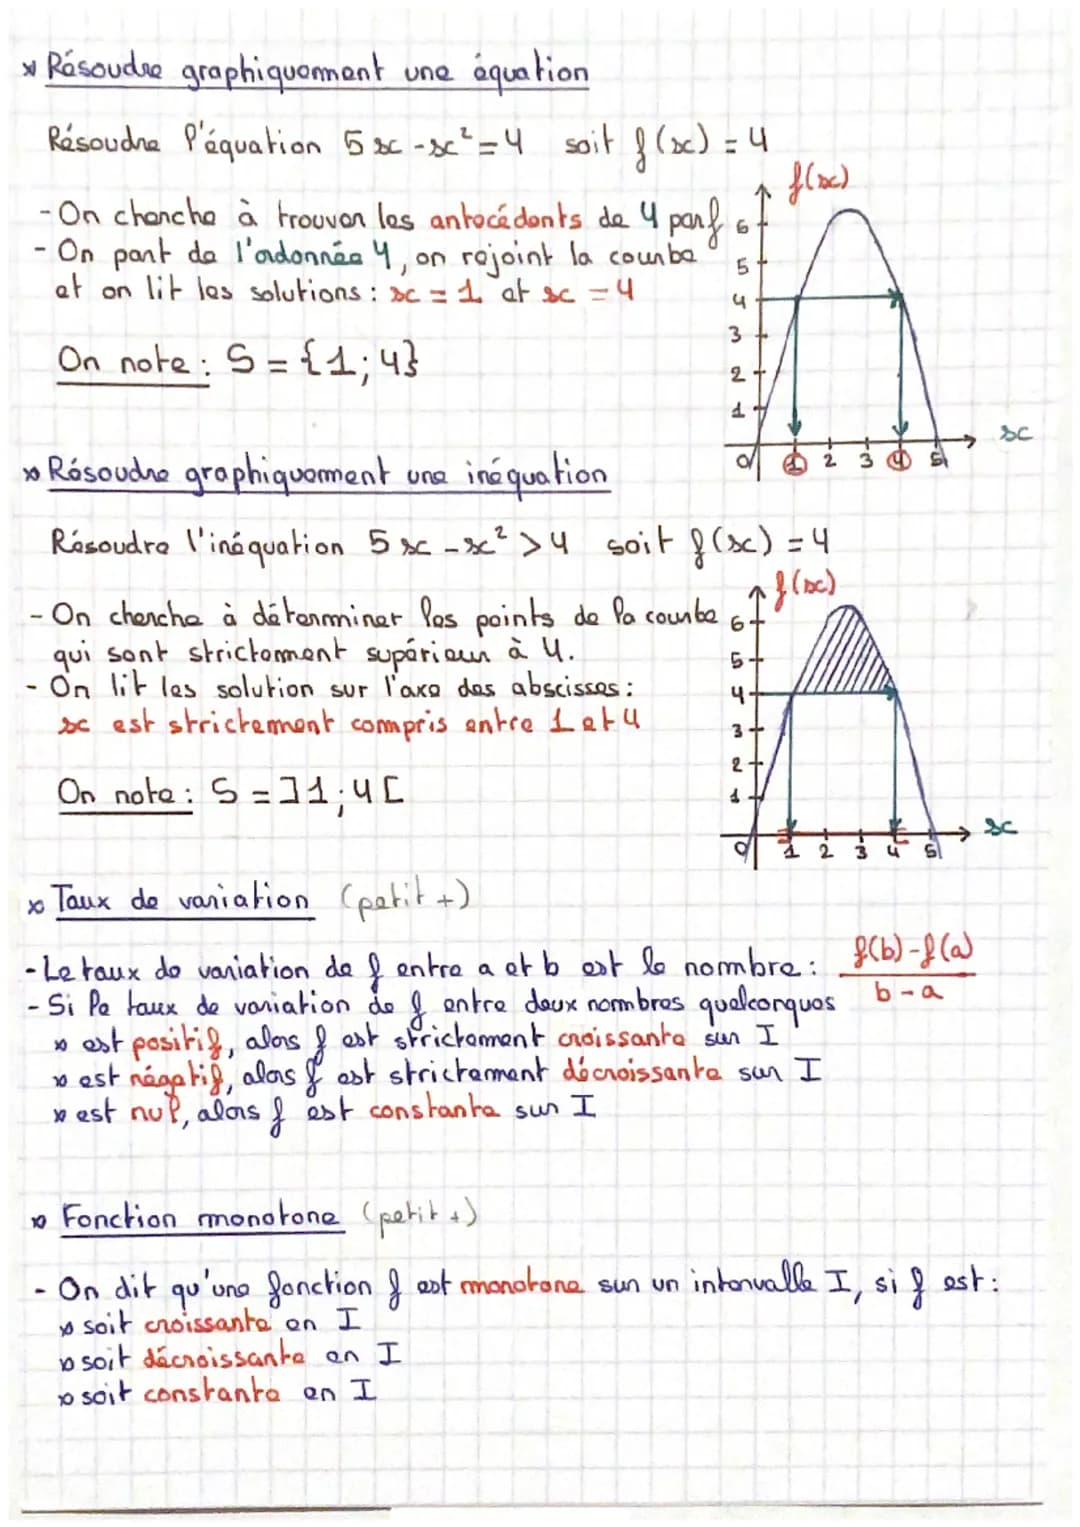 Résoudre graphiquement une équation
Résoudre l'équation 5x - x² = 4 soit f(x) = 4
- On cherche à trouver les antécédents de 4 par f
- On part de l'ordonnée 4, on rejoint la courbe
et on lit les solutions : x = 1 et x = 4
On note : S = {1; 4}
f(x)
6
5
4
3
2
1
0 1 2 3 4 5
x
Résoudre graphiquement une inéquation
Résoudre l'inéquation 5x - x² > 4 soit f(x) = 4
- On cherche à déterminer les points de la courbe
qui sont strictement supérieur à 4.
- On lit les solution sur l'axe des abscisses :
x est strictement compris entre 1 et 4
On note : S = ]1; 4[
f(x)
6
5
4
3
2
1
0 1 2 3 4 5
x
Taux de variation (petit +)
- Le taux de variation de f entre a et b est le nombre : f(b) - f(a) / b - a
- Si le taux de variation de f entre deux nombres quelconques
est positif, alors f est strictement croissante sur I
est négatif, alors f est strictement décroissante sur I
est nul, alors f est constante sur I
Fonction monotone (petit +)
- On dit qu'une fonction f est monotone sur un intervalle I, si f est :
soit croissante en I
soit décroissante en I
soit constante en I